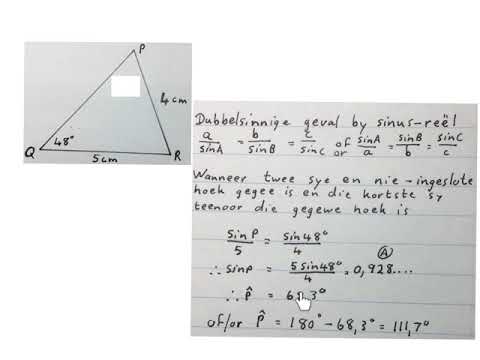 P
4cm
48°
Q
5cm
R
Dubbelsinnige geval by sinus-reël
a/sinA = b/sinB = c/sinC of/or sinA/a = sinB/b = sinC/c
Wanneer twee sye en nie-ingeslote
hoek gegee is en die kortste sy
teenoor die gegewe hoek is
sinP/5 = sin48°/4
Ⓐ
∴ sinP = 5sin48°/4 = 0,928....
∴ P̂ = 68,3°
of/or P̂ = 180° - 68,3° = 111,7°